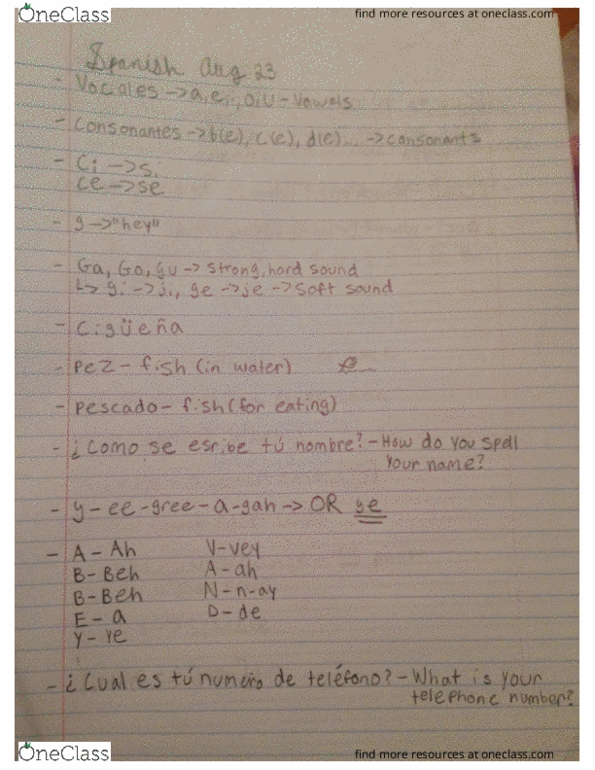 OneClass
find more resources at oneclass.com
Spanish Aug 23
- Vocales -> a, e, i, o, u - Vowels
- Consonantes -> b(e), c(e), d(e)... -> consonants
- Ci -> si
ce -> se
- g -> "hey"
- Ga, Go, gu -> strong, hard sound
↳ gi -> ji, ge -> je -> Soft sound
- Cigüeña
- Pez - fish (in water)
- Pescado - fish (for eating)
- ¿Como se esribe tú nombre? - How do you spell
your name?
- y - ee-gree-a-gah -> OR ye
- A - Ah V - vey
B - Beh A - ah
B - Beh N - n-ay
E - a D - de
Y - ye
- ¿Cual es tú numero de teléfono? - What is your
telephone number?
OneClass
find more resources at oneclass.com